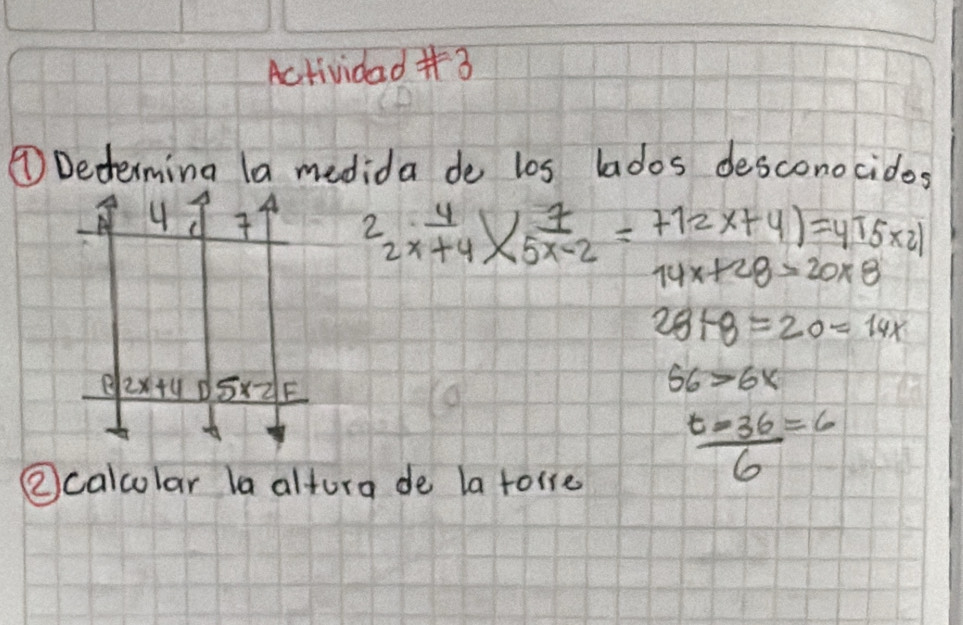 Actividad #3
① Determina la medida de los lados desconocidos
4 7
2x+4 D 5x-2 E
4/2x+4 7/5x-2 = 7(2x+4)=4(5x2)
14x+28=20x8
28+8=20=14x
36=6x
t=36=6
6
② calcular la altura de la torre